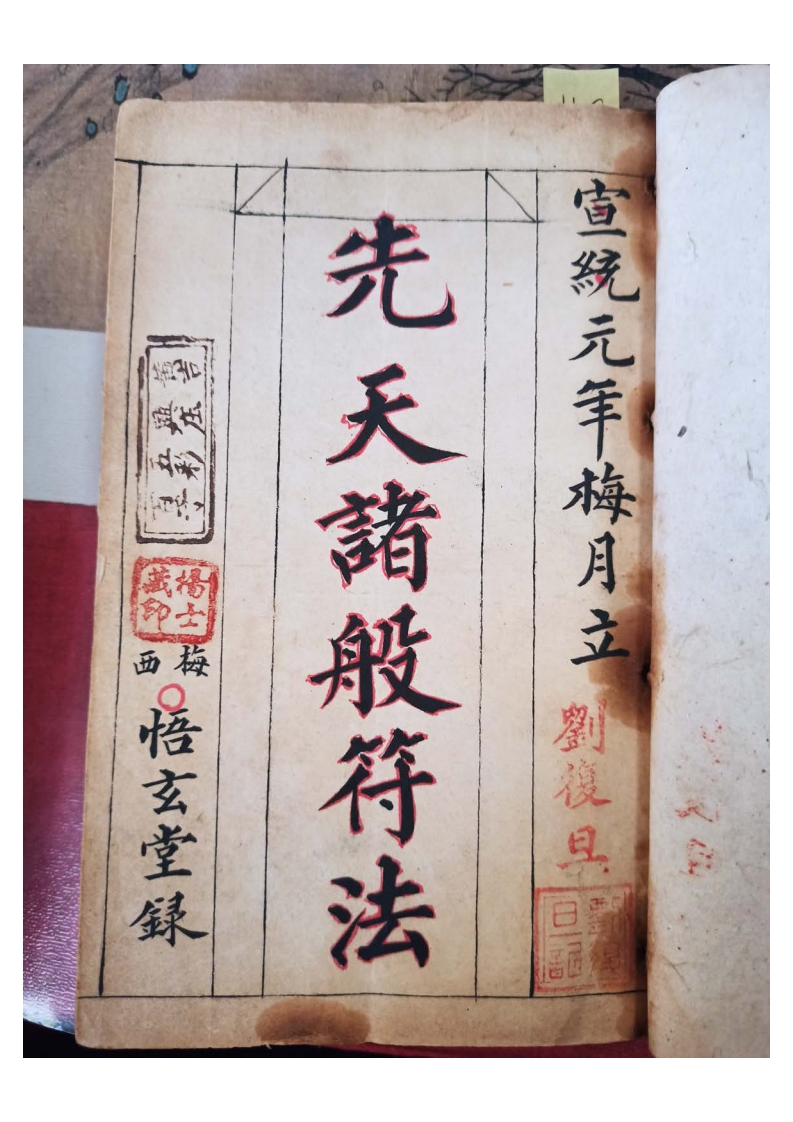 宣統元年梅月立
劉復旦
先天諸般符法
楊士藏印
梅西
悟玄堂錄